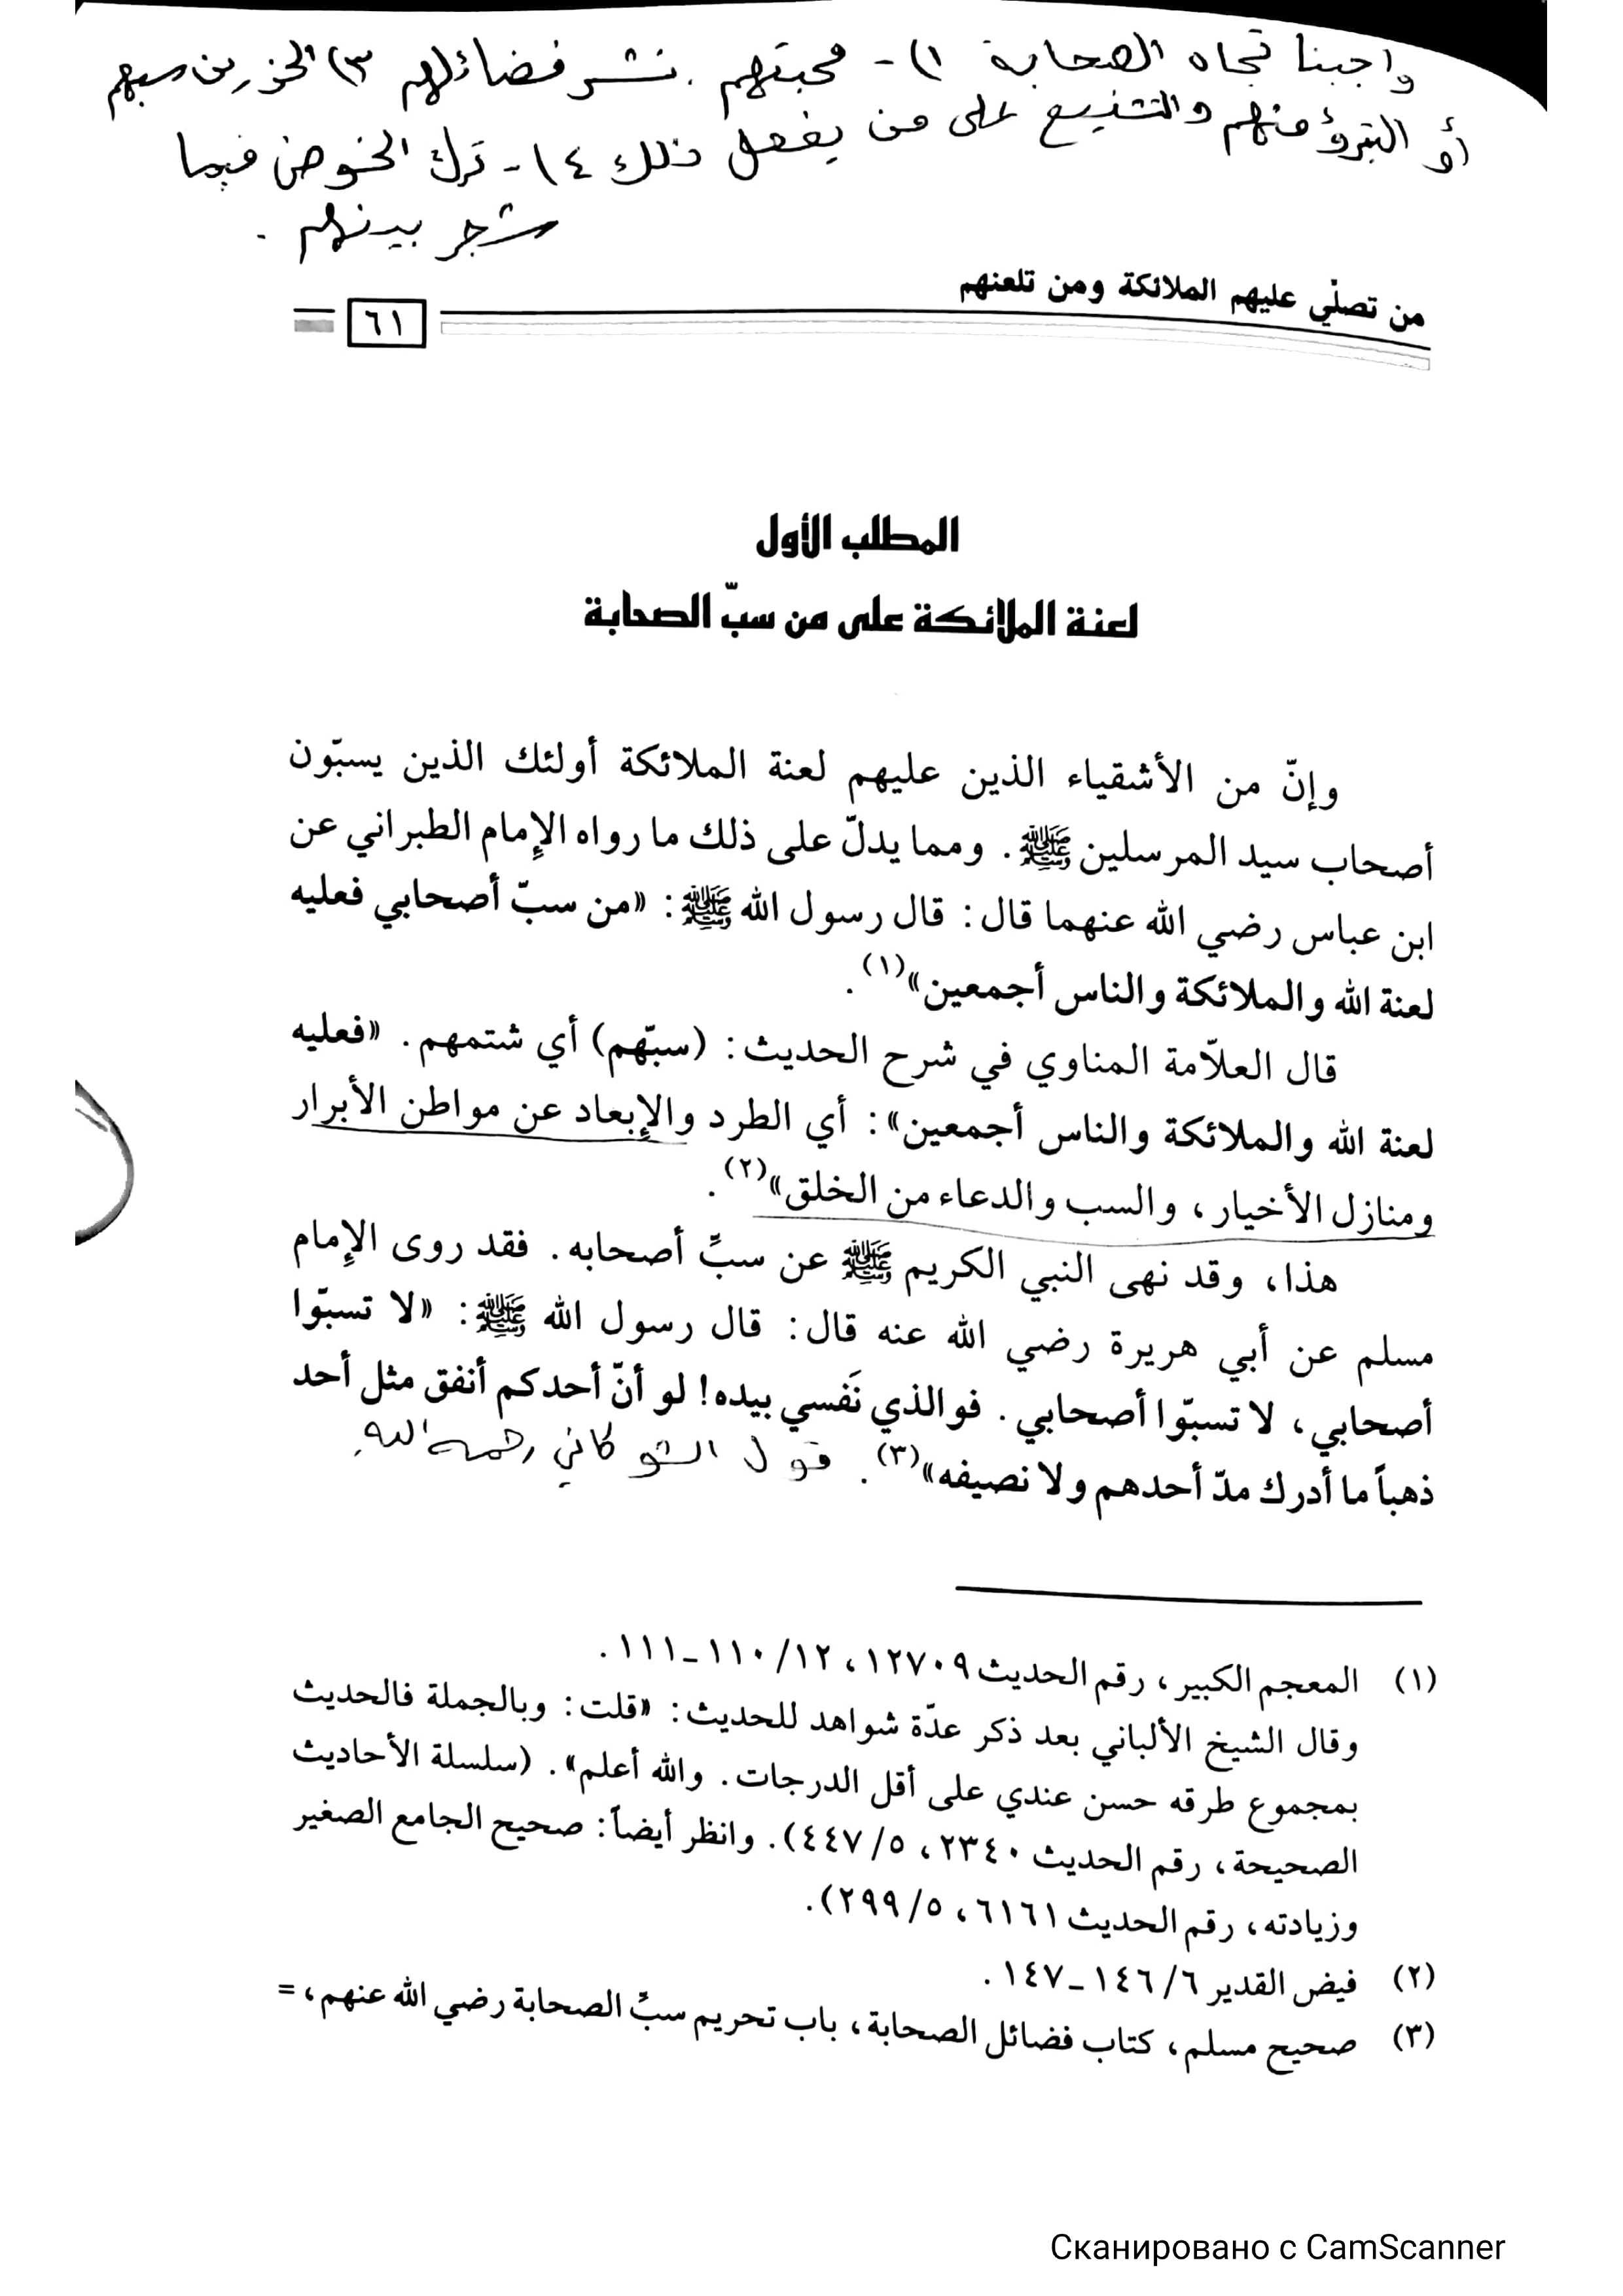 واجبنا تجاه الصحابة ١) - محبتهم . نشر فضائلهم ٣) الحذر من سبهم
أو التبرؤ منهم والتشنيع على من يفعل ذلك ٤) - ترك الخوض فيما
شجر بينهم .
من تصلّي عليهم الملائكة ومن تلعنهم
٦١
المطلب الأول
لعنة الملائكة على من سبّ الصحابة
وإنّ من الأشقياء الذين عليهم لعنة الملائكة أولئك الذين يسبّون
أصحاب سيد المرسلين ﷺ. ومما يدلّ على ذلك ما رواه الإمام الطبراني عن
ابن عباس رضي الله عنهما قال: قال رسول الله ﷺ: «من سبّ أصحابي فعليه
لعنة الله والملائكة والناس أجمعين»(١).
قال العلاّمة المناوي في شرح الحديث: (سبّهم) أي شتمهم. «فعليه
لعنة الله والملائكة والناس أجمعين»: أي الطرد والإبعاد عن مواطن الأبرار
ومنازل الأخيار، والسب والدعاء من الخلق»(٢).
هذا، وقد نهى النبي الكريم ﷺ عن سبِّ أصحابه. فقد روى الإمام
مسلم عن أبي هريرة رضي الله عنه قال: قال رسول الله ﷺ: «لا تسبّوا
أصحابي، لا تسبّوا أصحابي. فوالذي نَفسي بيده! لو أنّ أحدكم أنفق مثل أحد
ذهباً ما أدرك مدّ أحدهم ولا نصيفه»(٣). قول الشوكاني رحمه الله.
(١) المعجم الكبير، رقم الحديث ١٢٧٠٩، ١٢/ ١١٠-١١١.
وقال الشيخ الألباني بعد ذكر عدّة شواهد للحديث: «قلت: وبالجملة فالحديث
بمجموع طرقه حسن عندي على أقل الدرجات. والله أعلم». (سلسلة الأحاديث
الصحيحة، رقم الحديث ٢٣٤٠، ٥/ ٤٤٧). وانظر أيضاً: صحيح الجامع الصغير
وزيادته، رقم الحديث ٦١٦١، ٥/ ٢٩٩).
(٢) فيض القدير ٦/ ١٤٦-١٤٧.
(٣) صحيح مسلم، كتاب فضائل الصحابة، باب تحريم سبِّ الصحابة رضي الله عنهم، =
Сканировано с CamScanner